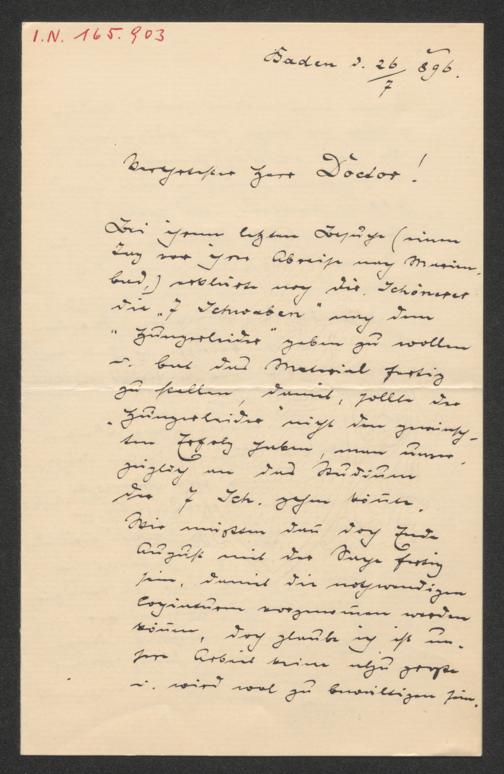 I.N. 165.903
Baden d. 26/7 896.
Verehrtester Herr Doctor!
Bei ihrem letzten Besuche (einen
Tag vor ihrer Abreise nach Marien-
bad,) erklärte noch Dir. Schönerer
die „7 Schwaben" nach dem
„Hungerleider" geben zu wollen
u. bat das Material fertig
zu stellen, damit, sollte der
„Hungerleider" nicht den gewünsch-
ten Erfolg haben, man unver-
züglich an das Studium
der 7 Sch. gehen könnte.
Wir müßten dann doch Ende
August mit der Sache fertig
sein, damit die nothwendigen
Copiaturen vorgenommen werden
können, doch glaube ich ist un-
sere Arbeit keine allzu große
u. wird wol zu bewältigen sein.